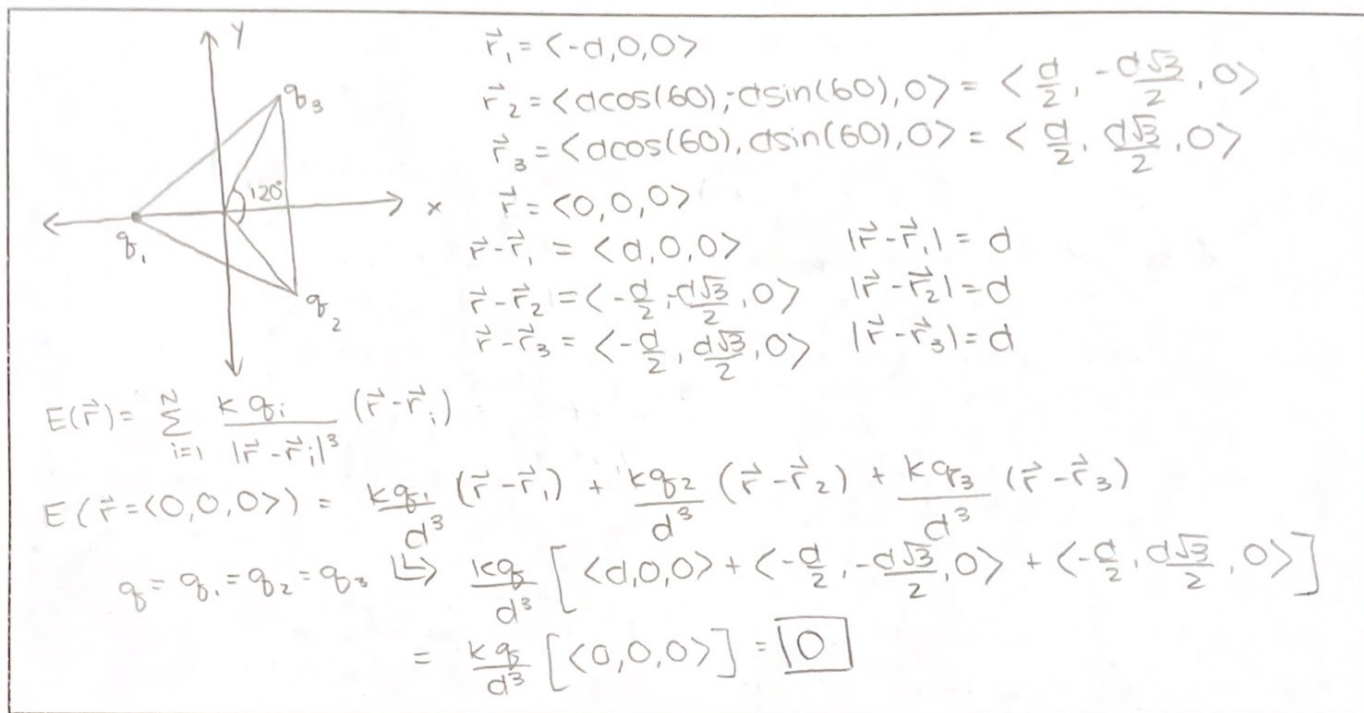 y
q₃
120°
x
q₁
q₂
r⃗₁ = <-d, 0, 0>
r⃗₂ = <dcos(60), -dsin(60), 0> = <d/2, -d√3/2, 0>
r⃗₃ = <dcos(60), dsin(60), 0> = <d/2, d√3/2, 0>
r⃗ = <0, 0, 0>
r⃗-r⃗₁ = <d, 0, 0> |r⃗-r⃗₁| = d
r⃗-r⃗₂ = <-d/2, -d√3/2, 0> |r⃗-r⃗₂| = d
r⃗-r⃗₃ = <-d/2, d√3/2, 0> |r⃗-r⃗₃| = d
E(r⃗) = Σ_{i=1}^{N} kqᵢ/|r⃗-r⃗ᵢ|³ (r⃗-r⃗ᵢ)
E(r⃗=<0,0,0>) = kq₁/d³ (r⃗-r⃗₁) + kq₂/d³ (r⃗-r⃗₂) + kq₃/d³ (r⃗-r⃗₃)
q = q₁ = q₂ = q₃ ↳ kq/d³ [<d,0,0> + <-d/2, -d√3/2, 0> + <-d/2, d√3/2, 0>]
= kq/d³ [<0,0,0>] = 0